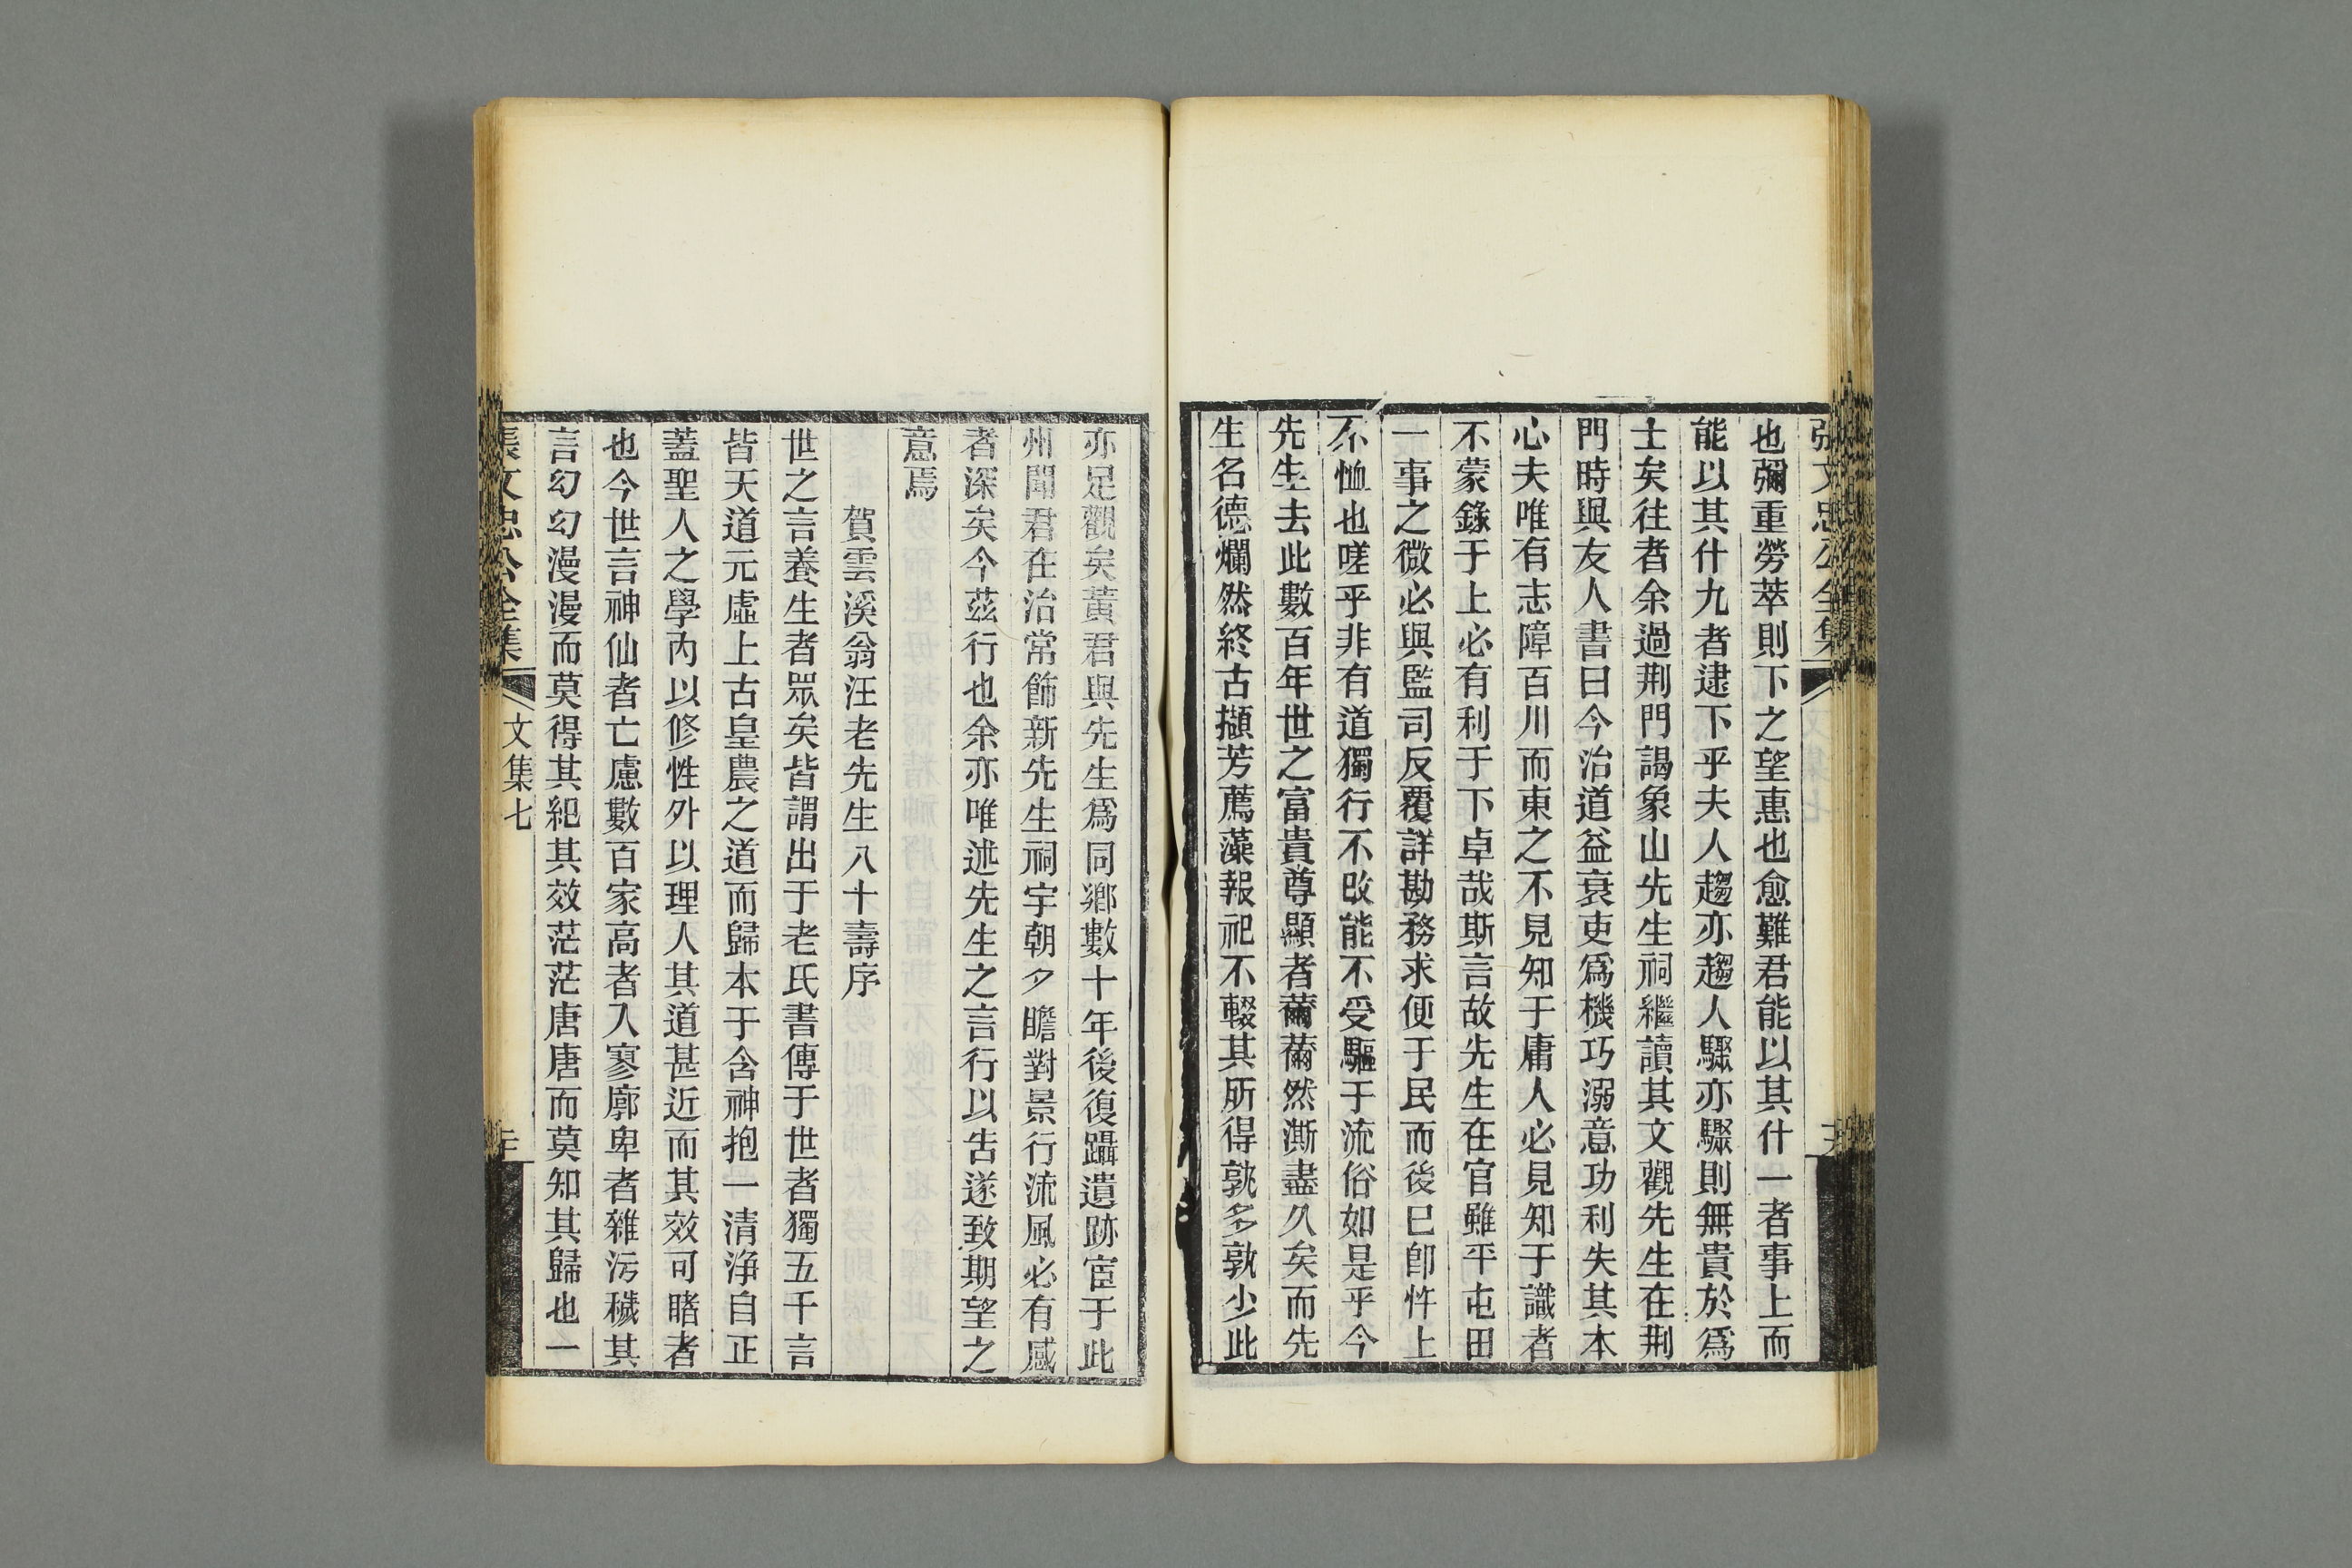 張文忠公全集
也彌重勞萃則下之望恵也愈難君能以其什一者事上而
能以其什九者逮下乎夫人趨亦趨人驟亦驟則無貴於爲
士矣往者余過荆門謁象山先生祠繼讀其文觀先生在荆
門時與友人書曰今治道益衰吏爲機巧溺意功利失其本
心夫唯有志障百川而東之不見知于庸人必見知于識者
不蒙錄于上必有利于下卓哉斯言故先生在官雖平屯田
一事之微必與監司反覆詳勘務求便于民而後已卽忤上
不恤也嗟乎非有道獨行不改能不受驅于流俗如是乎今
先生去此數百年世之富貴尊顯者薾薾然澌盡久矣而先
生名德爛然終古擷芳薦藻報祀不輟其所得孰多孰少此
亦足觀矣黃君與先生爲同鄕數十年後復躡遺跡宦于此
州聞君在治常飾新先生祠宇朝夕瞻對景行流風必有感
者深矣今茲行也余亦唯述先生之言行以告遂致期望之
意焉
賀雲溪翁汪老先生八十壽序
世之言養生者眾矣皆謂出于老氏書傳于世者獨五千言
皆天道元虛上古皇農之道而歸本于含神抱一清浄自正
蓋聖人之學內以修性外以理人其道甚近而其效可睹者
也今世言神仙者亡慮數百家高者入寥廓卑者雜污穢其
言幻幻漫漫而莫得其紀其效茫茫唐唐而莫知其歸也一
張文忠公全集
文集七